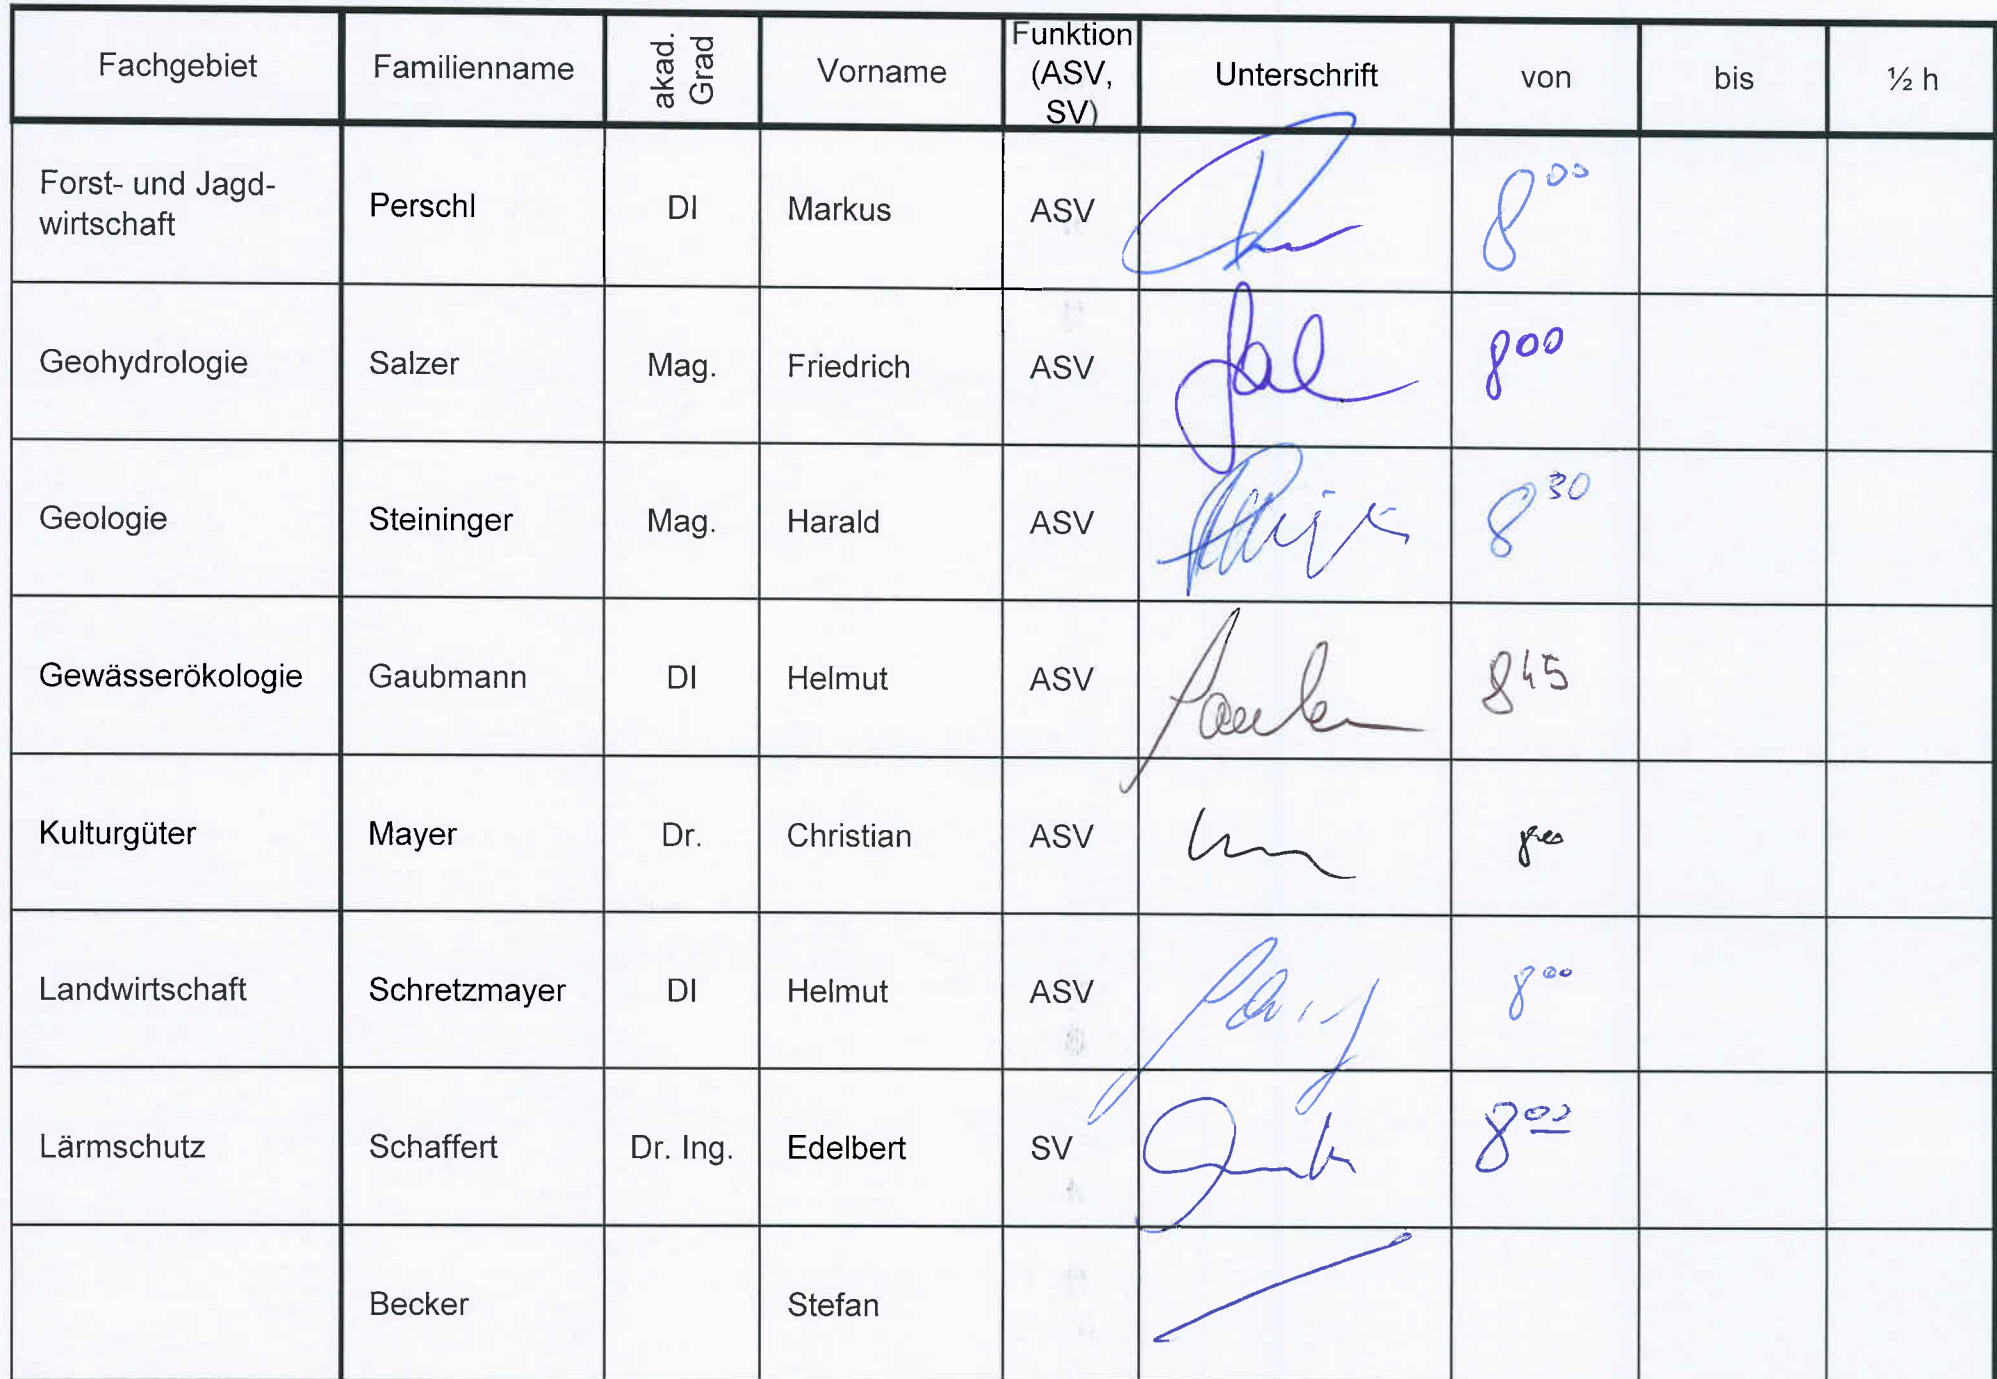 Fachgebiet Familienname akad. Grad Vorname Funktion (ASV, SV) Unterschrift von bis ½ h
Forst- und Jagd-
wirtschaft Perschl DI Markus ASV 8⁰⁰
Geohydrologie Salzer Mag. Friedrich ASV 8⁰⁰
Geologie Steininger Mag. Harald ASV 8³⁰
Gewässerökologie Gaubmann DI Helmut ASV 8⁴⁵
Kulturgüter Mayer Dr. Christian ASV
Landwirtschaft Schretzmayer DI Helmut ASV 8⁰⁰
Lärmschutz Schaffert Dr. Ing. Edelbert SV 8⁰⁰
Becker Stefan